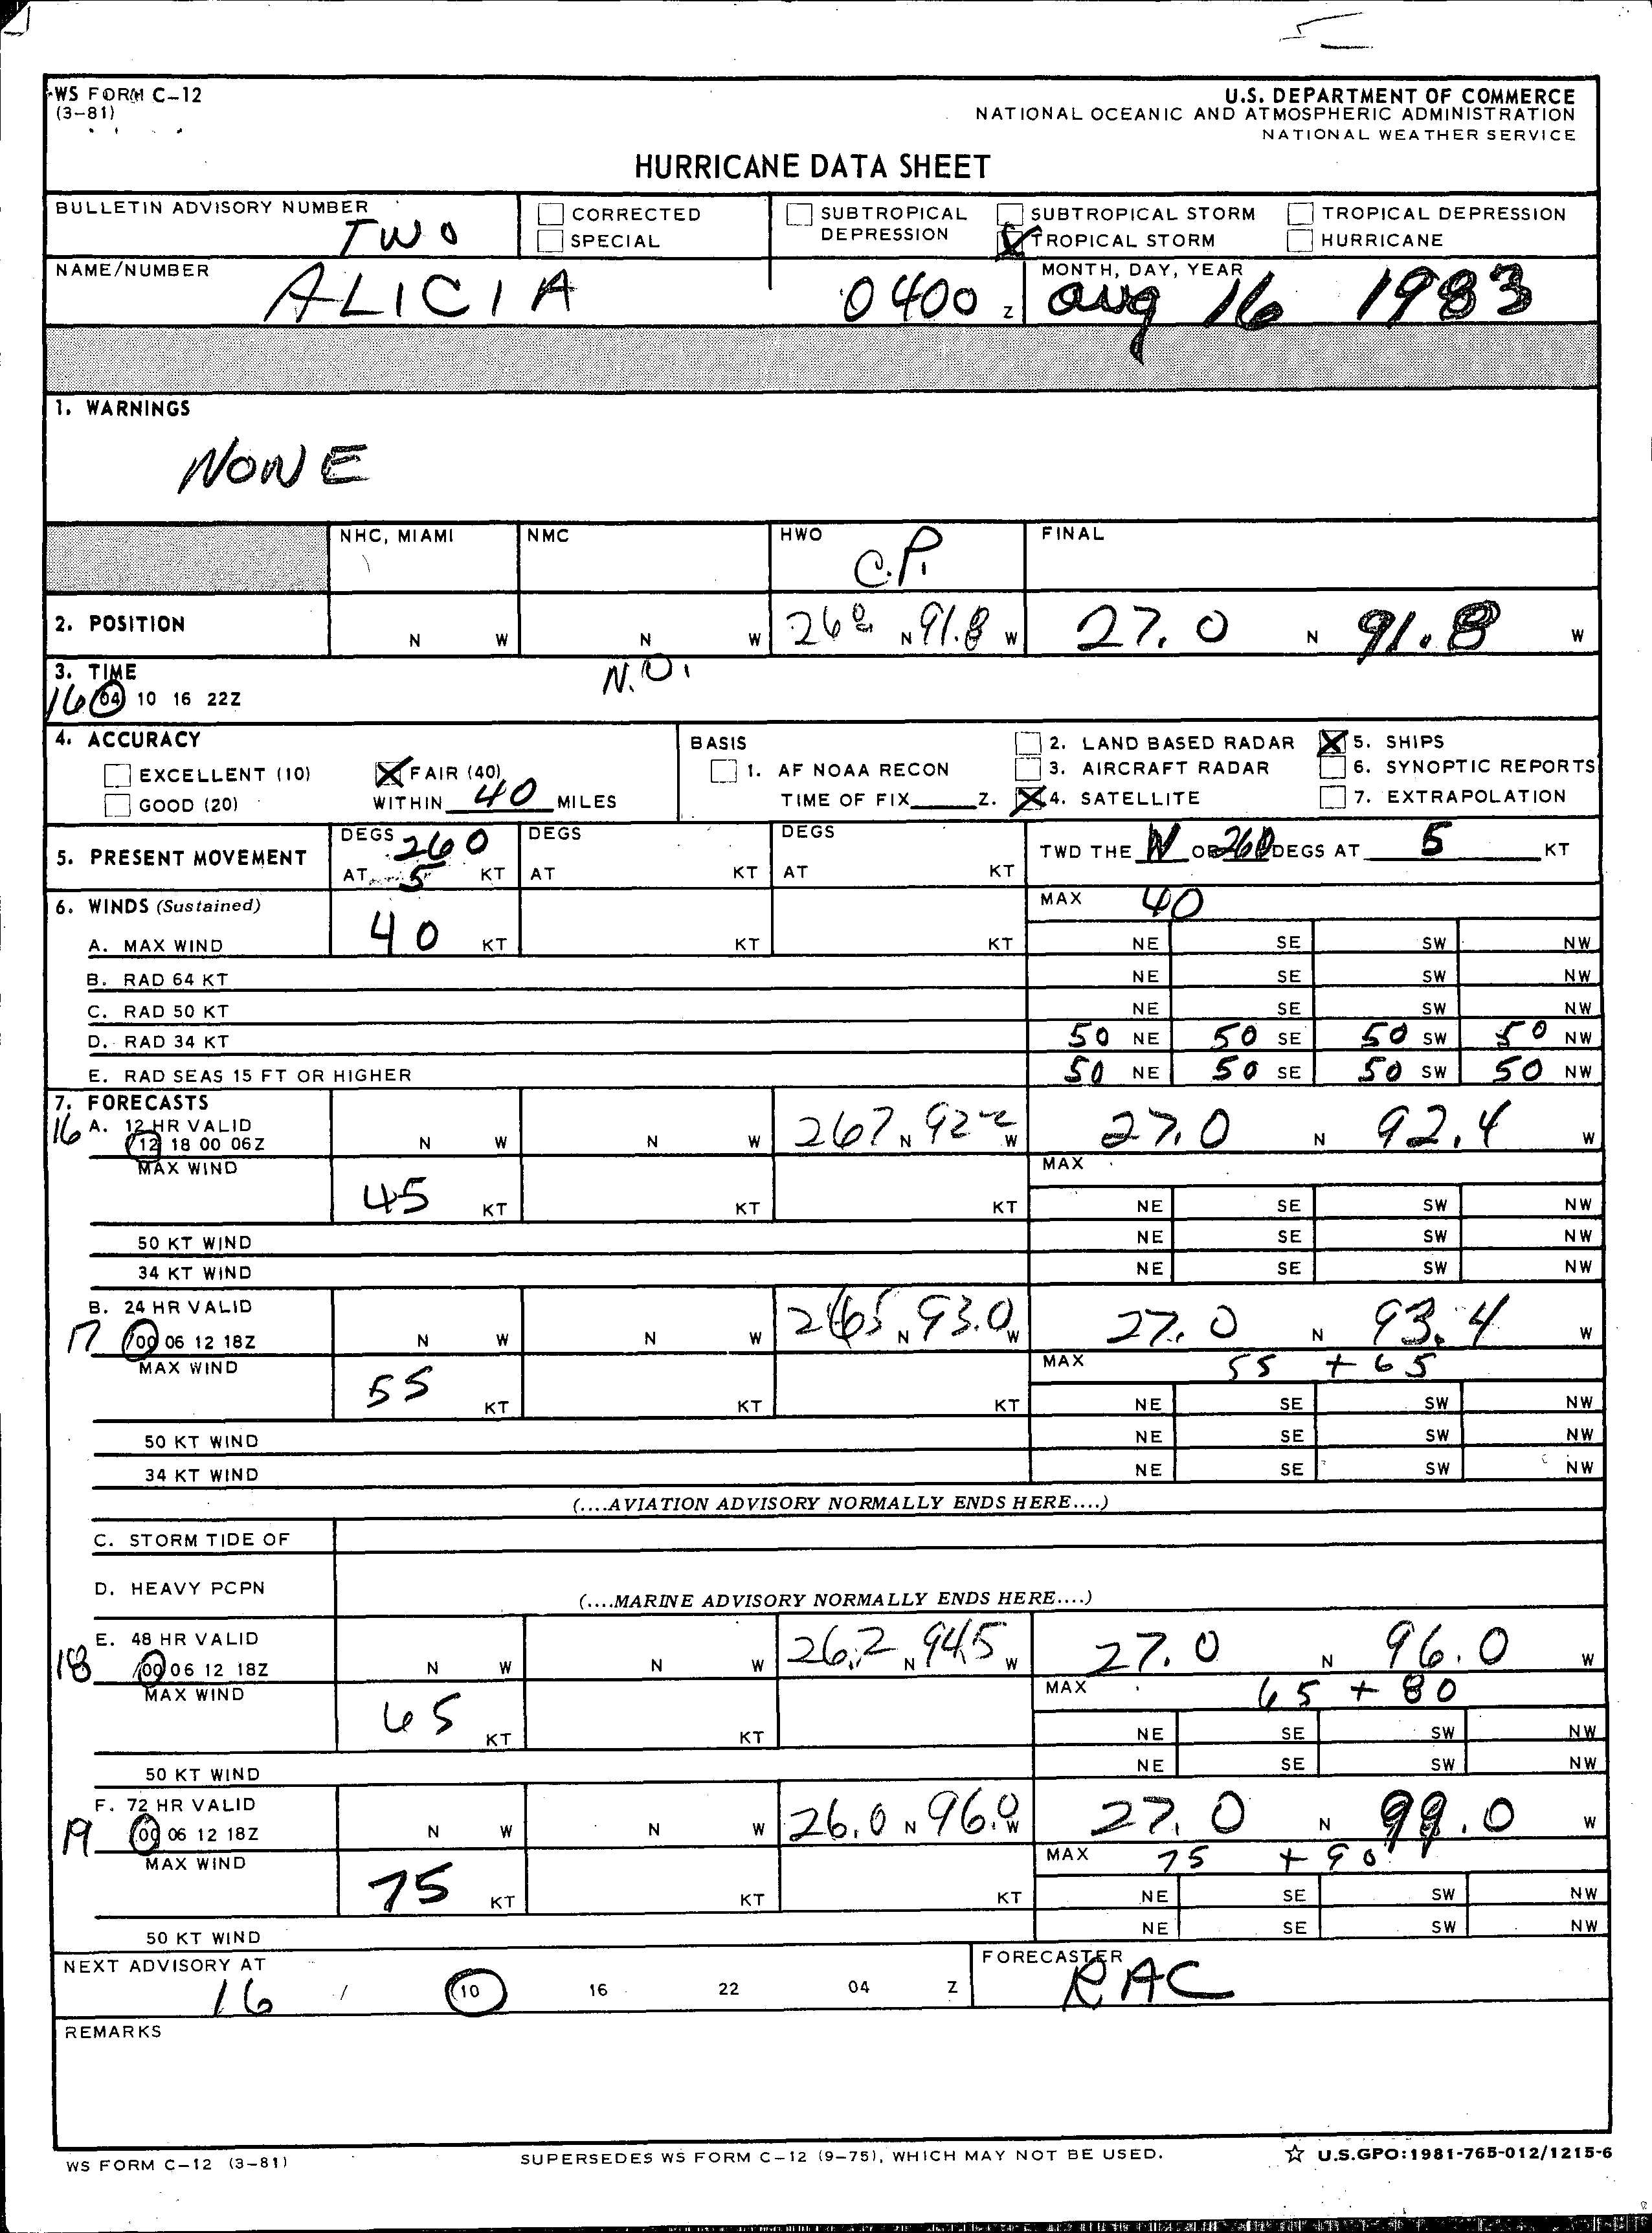 WS FORM C-12
(3-81)
U.S. DEPARTMENT OF COMMERCE
NATIONAL OCEANIC AND ATMOSPHERIC ADMINISTRATION
NATIONAL WEATHER SERVICE
HURRICANE DATA SHEET
BULLETIN ADVISORY NUMBER TWO CORRECTED SPECIAL SUBTROPICAL DEPRESSION SUBTROPICAL STORM X TROPICAL STORM TROPICAL DEPRESSION HURRICANE
NAME/NUMBER ALICIA 0400 Z MONTH, DAY, YEAR aug 16 1983
1. WARNINGS
NONE
NHC, MIAMI NMC HWO C.P. FINAL
2. POSITION N W N W N 91.8 W 27.0 N 91.8 W
3. TIME N.O.
16 04 10 16 22Z
4. ACCURACY BASIS 2. LAND BASED RADAR X 5. SHIPS
EXCELLENT (10) X FAIR (40) 1. AF NOAA RECON 3. AIRCRAFT RADAR 6. SYNOPTIC REPORTS
GOOD (20) WITHIN 40 MILES TIME OF FIX Z. X 4. SATELLITE 7. EXTRAPOLATION
5. PRESENT MOVEMENT DEGS 260 DEGS DEGS TWD THE W OR 260 DEGS AT 5 KT
AT 5 KT AT KT AT KT
6. WINDS (Sustained) MAX 40
A. MAX WIND 40 KT KT KT NE SE SW NW
B. RAD 64 KT NE SE SW NW
C. RAD 50 KT NE SE SW NW
D. RAD 34 KT 50 NE 50 SE 50 SW 50 NW
E. RAD SEAS 15 FT OR HIGHER 50 NE 50 SE 50 SW 50 NW
7. FORECASTS
16 A. 12 HR VALID
12 18 00 06Z N W N W 267 N 922 W 27.0 N 92.4 W
MAX WIND 45 KT KT KT MAX
NE SE SW NW
50 KT WIND NE SE SW NW
34 KT WIND NE SE SW NW
B. 24 HR VALID
17 00 06 12 18Z N W N W 265 N 93.0 W 27.0 N 93.4 W
MAX WIND 55 KT KT KT MAX 55 + 65
NE SE SW NW
50 KT WIND NE SE SW NW
34 KT WIND NE SE SW NW
(....AVIATION ADVISORY NORMALLY ENDS HERE....)
C. STORM TIDE OF
D. HEAVY PCPN
(....MARINE ADVISORY NORMALLY ENDS HERE....)
E. 48 HR VALID
18 00 06 12 18Z N W N W 26.2 N 94.5 W 27.0 N 96.0 W
MAX WIND 65 KT KT MAX 65 + 80
NE SE SW NW
50 KT WIND NE SE SW NW
F. 72 HR VALID
19 00 06 12 18Z N W N W 26.0 N 96.0 W 27.0 N 99.0 W
MAX WIND 75 KT KT KT MAX 75 + 90
NE SE SW NW
50 KT WIND NE SE SW NW
NEXT ADVISORY AT 16 / 10 16 22 04 Z FORECASTER RAC
REMARKS
WS FORM C-12 (3-81) SUPERSEDES WS FORM C-12 (9-75), WHICH MAY NOT BE USED. ☆ U.S.GPO:1981-765-012/1215-6